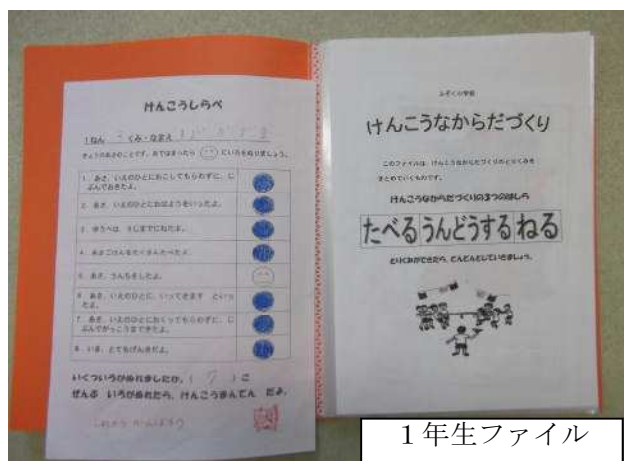 けんこうしらべ
1ねん くみ・なまえ
きょうのあさのことです。あてはまったら にいろをぬりましょう。
1．あさ、いえのひとにおこしてもらわずに、じ
ぶんでおきたよ。
2．あさ、いえのひとにおはようをいったよ。
3．ゆうべは 9じまでにねたよ。
4．あさごはんをたくさんたべたよ。
5．あさ、うんちをしたよ。
6．あさ、いえのひとに、いってきます といっ
たよ。
7．あさ、いえのひとにおくってもらわずに、じ
ぶんでがっこうまできたよ。
8．いま、とてもげんきだよ。
いくついろがぬれましたか。( 7 )こ
ぜんぶ いろがぬれたら、けんこうまんてん だよ。
ふぞく小学部
けんこうなからだづくり
このファイルは、けんこうなからだづくりのとりくみを
まとめていくものです。
けんこうなからだづくりの3つのはしら
たべる うんどうする ねる
とりくみができたら、どんどんとじていきましょう。
1年生ファイル